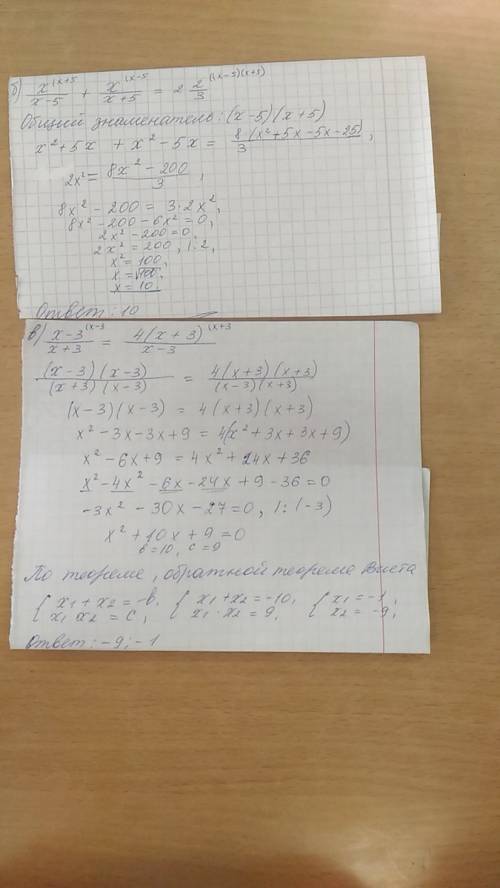 б) x^(x+5 / x-5 + x^(x-5 / x+5 = 2 2/3^((x-5)(x+5)
Общий знаменатель: (x-5)(x+5)
x²+5x + x²-5x = 8(x²+5x-5x-25)/3,
2x² = 8x²-200/3,
8x² - 200 = 3·2x²,
8x² - 200 - 6x² = 0,
2x² - 200 = 0,
2x² = 200, |:2,
x² = 100,
x = √100,
x = 10.
Ответ: 10
в) x-3^(x-3 / x+3 = 4(x+3)^(x+3 / x-3
(x-3)(x-3)/(x+3)(x-3) = 4(x+3)(x+3)/(x-3)(x+3)
(x-3)(x-3) = 4(x+3)(x+3)
x²-3x-3x+9 = 4(x²+3x+3x+9)
x²-6x+9 = 4x²+24x+36
x²-4x²-6x-24x+9-36=0
-3x²-30x-27=0, |:(-3)
x²+10x+9=0
b=10, c=9
По теореме, обратной теореме Виета
{ x₁+x₂=-b, { x₁+x₂=-10, { x₁=-1,
x₁·x₂=c, x₁·x₂=9, x₂=-9,
Ответ: -9; -1